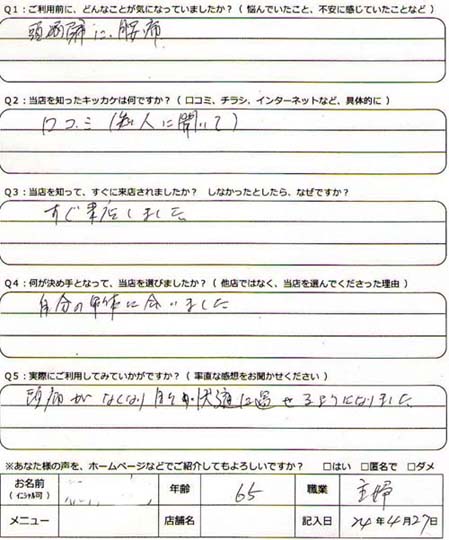 Q1：ご利用前に、どんなことが気になっていましたか？（ 悩んでいたこと、不安に感じていたことなど ）
頭痛 に、腰痛
Q2：当店を知ったキッカケは何ですか？（ 口コミ、チラシ、インターネットなど、具体的に ）
口コミ（知人に聞いて）
Q3：当店を知って、すぐに来店されましたか？ しなかったとしたら、なぜですか？
すぐ来店しました
Q4：何が決め手となって、当店を選びましたか？（ 他店ではなく、当店を選んでくださった理由 ）
自分の 体に合いました
Q5：実際にご利用してみていかがですか？（ 率直な感想をお聞かせください ）
頭痛がなくなり 快適に過せるようになりました
※あなた様の声を、ホームページなどでご紹介してもよろしいですか？ □はい □匿名で □ダメ
お名前 年齢 65 職業 主婦
（イニシャル可）
メニュー 店舗名 記入日 24年4月27日